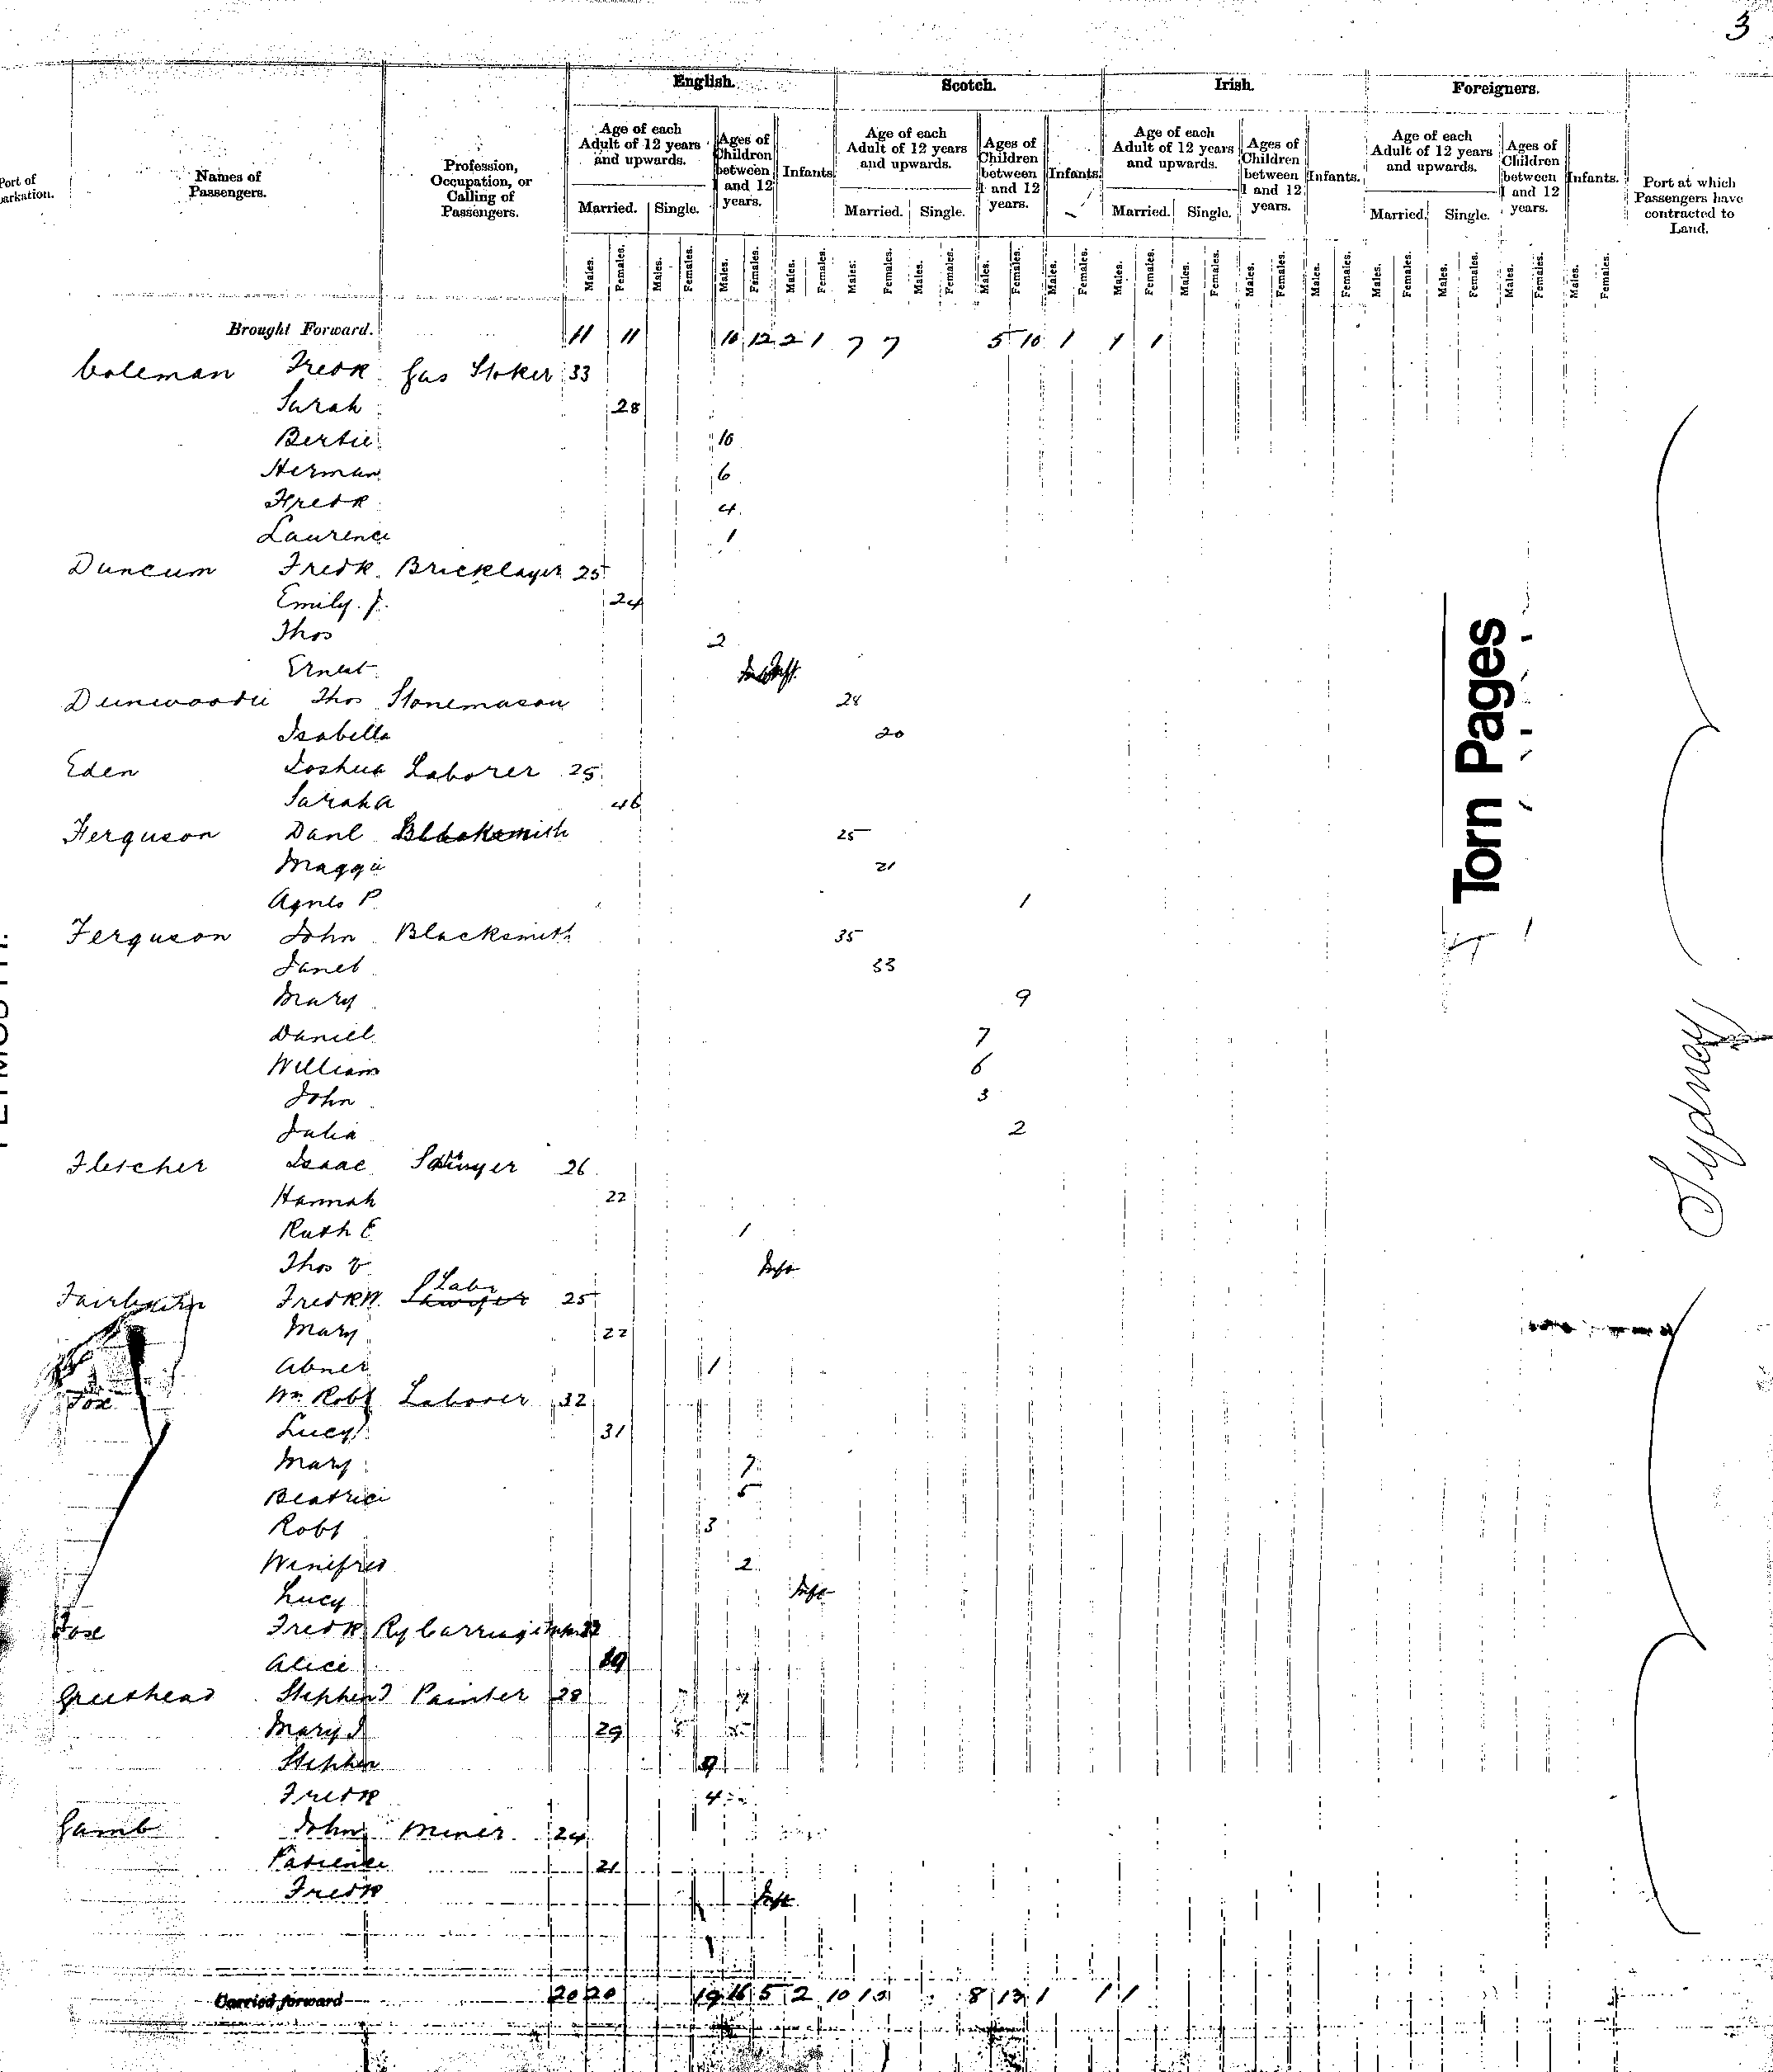 3
English. Scotch. Irish. Foreigners.
Port of
arkation.
Names of
Passengers.
Profession,
Occupation, or
Calling of
Passengers.
Age of each
Adult of 12 years
and upwards.
Ages of
Children
between
1 and 12
years.
Infants.
Age of each
Adult of 12 years
and upwards.
Ages of
Children
between
1 and 12
years.
Infants.
Age of each
Adult of 12 years
and upwards.
Ages of
Children
between
1 and 12
years.
Infants.
Age of each
Adult of 12 years
and upwards.
Ages of
Children
between
1 and 12
years.
Infants.
Port at which
Passengers have
contracted to
Land.
Married. Single. Married. Single. Married. Single. Married. Single.
Males. Females. Males. Females. Males. Females. Males. Females. Males. Females. Males. Females. Males. Females. Males. Females. Males. Females. Males. Females. Males. Females. Males. Females. Males. Females. Males. Females. Males. Females. Males. Females.
Brought Forward. 11 11 10 12 2 1 7 7 5 10 1 1 1
Coleman Fredk Gas Stoker 33
Sarah 28
Bertie 10
Herman 6
Fredk 4
Laurence 1
Duncum Fredk. Bricklayer 25
Emily. J. 24
Thos 2
Ernest Inft.
Dunwoodie Thos Stonemason 28
Isabella 20
Eden Joshua Laborer 25
Sarah A 46
Ferguson Danl Blacksmith 25
Maggie 21
Agnes P. 1
Ferguson John Blacksmith 35
Janet 33
Mary 9
Daniel 7
William 6
John 3
Julia 2
Fletcher Isaac 26
Hannah 22
Ruth E 1
Thos V Inft
Fairbairn Fredk W. Labr Sawyer 25
Mary 22
Abner 1
Fox Wm Robt Laborer 32
Lucy 31
Mary 7
Beatrice 5
Robt 3
Winifred 2
Lucy Inft
Fox Fredk Ry Carriage
Alice
Greethead Stephen J Painter 28
Mary J 29
Stephen 9
Fredk 4
Gamb John Miner 24
Patience 21
Fredk Inft
Carried forward 20 20 19 16 5 2 10 10 8 13 1 1 1
Torn Pages
Sydney